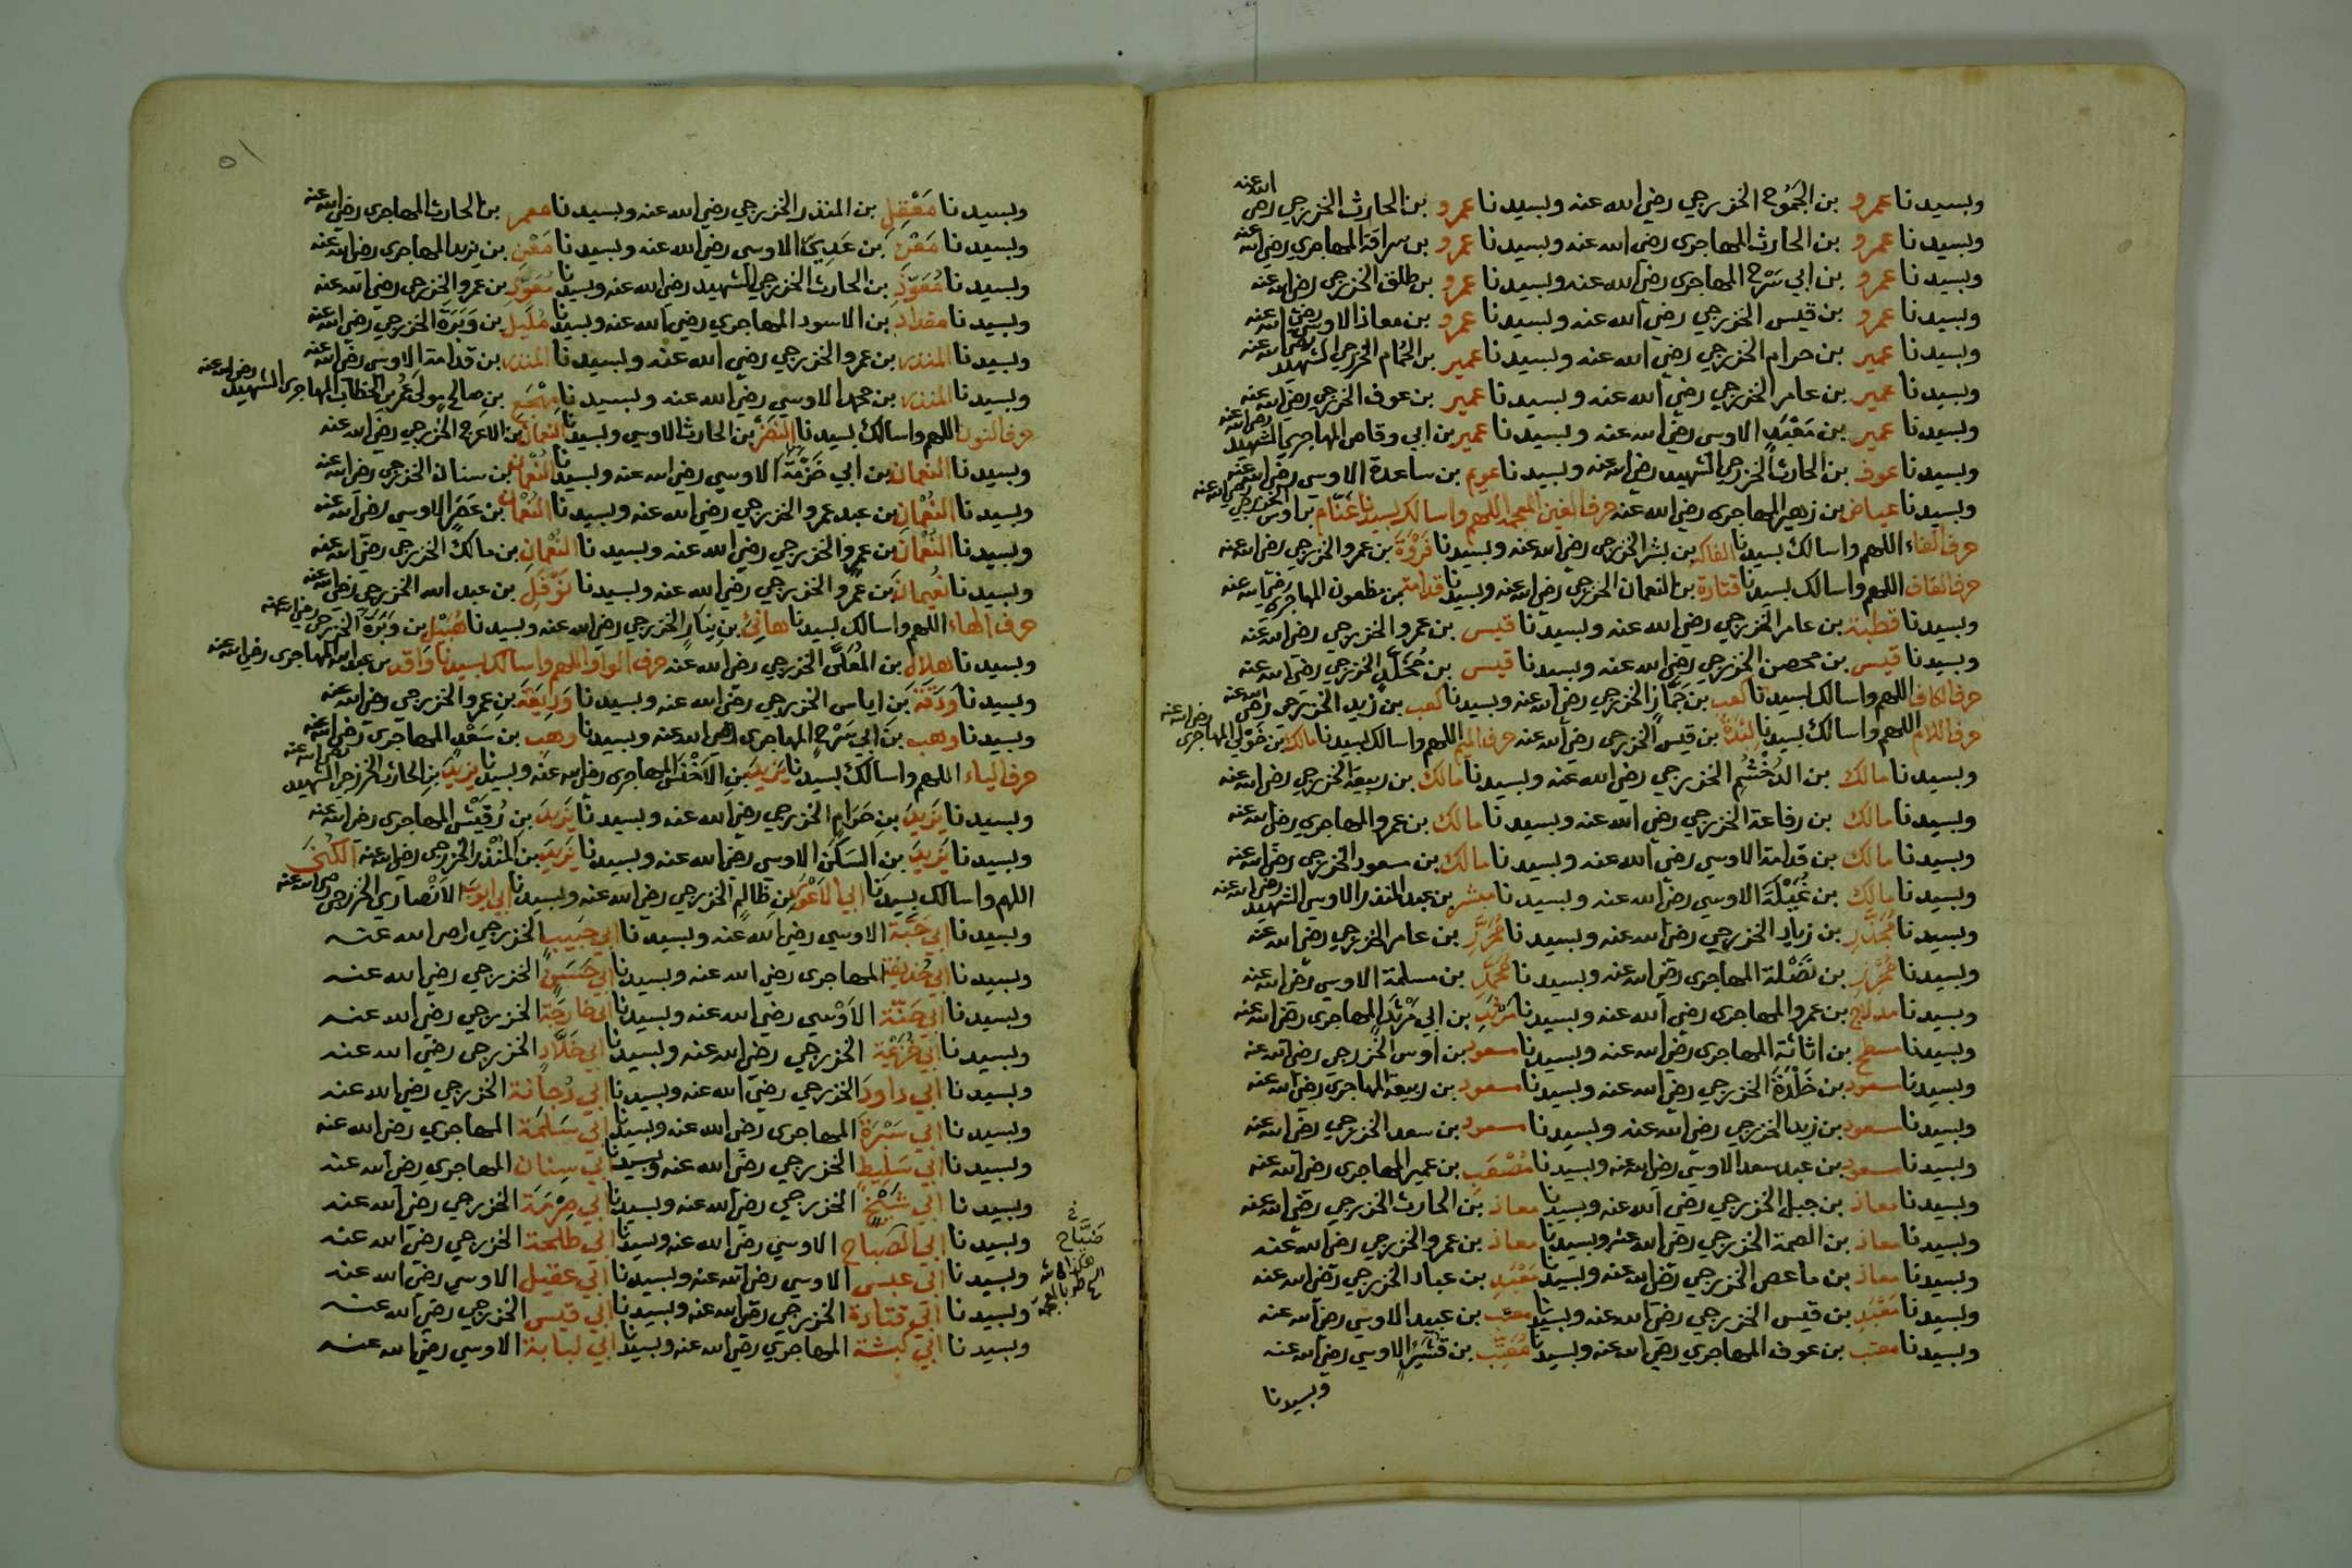 وبسيدنا عمرو بن الجَمُوح الخزرجي رضي الله عنه وبسيدنا عمرو بن الحارث الخزرجي رضي الله عنه
وبسيدنا عمرو بن الحارث المهاجري رضي الله عنه وبسيدنا عمرو بن سراقة المهاجري رضي الله عنه
وبسيدنا عمرو بن ابي سَرْح المهاجري رضي الله عنه وبسيدنا عمرو بن طلق الخزرجي رضي الله عنه
وبسيدنا عمرو بن قيس الخزرجي رضي الله عنه وبسيدنا عمرو بن معاذ الاوسي رضي الله عنه
وبسيدنا عمير بن حرام الخزرجي رضي الله عنه وبسيدنا عمير بن الحُمام الخزرجي الشهيد رضي الله عنه
وبسيدنا عمير بن عامر الخزرجي رضي الله عنه وبسيدنا عمير بن عوف الخزرجي رضي الله عنه
وبسيدنا عمير بن مَعْبَدٍ الاوسي رضي الله عنه وبسيدنا عمير بن ابي وقاص المهاجري الشهيد رضي الله عنه
وبسيدنا عوف بن الحارث الخزرجي الشهيد رضي الله عنه وبسيدنا عويم بن ساعدة الاوسي رضي الله عنه
وبسيدنا عياض بن زهير المهاجري رضي الله عنه حرف الغين المعجمة اللهم واسالك بسيدنا غَنّام بن اوس الخزرجي رضي الله عنه
حرف الفاء اللهم واسالك بسيدنا الفاكه بن بشر الخزرجي رضي الله عنه وبسيدنا فَرْوَةَ بن عمرو الخزرجي رضي الله عنه
حرف القاف اللهم واسالك بسيدنا قتادة بن النعمان الخزرجي رضي الله عنه وبسيدنا قدامة بن مظعون المهاجري رضي الله عنه
وبسيدنا قطبة بن عامر الخزرجي رضي الله عنه وبسيدنا قيس بن عمرو الخزرجي رضي الله عنه
وبسيدنا قيس بن محصن الخزرجي رضي الله عنه وبسيدنا قيس بن مُخَلَّدٍ الخزرجي رضي الله عنه
حرف الكاف اللهم واسالك بسيدنا كعب بن جَمَّازٍ الخزرجي رضي الله عنه وبسيدنا كعب بن زيد الخزرجي رضي الله عنه
حرف اللام اللهم واسالك بسيدنا لِبْدَةَ بن قيس الخزرجي رضي الله عنه حرف الميم اللهم واسالك بسيدنا مالك بن خَوْلي المهاجري رضي الله عنه
وبسيدنا مالك بن الدُخْشُمِ الخزرجي رضي الله عنه وبسيدنا مالك بن ربيعة الخزرجي رضي الله عنه
وبسيدنا مالك بن رفاعة الخزرجي رضي الله عنه وبسيدنا مالك بن عمرو المهاجري رضي الله عنه
وبسيدنا مالك بن قدامة الاوسي رضي الله عنه وبسيدنا مالك بن مسعود الخزرجي رضي الله عنه
وبسيدنا مالك بن نُمَيْلَةَ الاوسي رضي الله عنه وبسيدنا مبشر بن عبد المنذر الاوسي الشهيد رضي الله عنه
وبسيدنا مُجَذَّرِ بن زياد الخزرجي رضي الله عنه وبسيدنا مُحْرِزِ بن عامر الخزرجي رضي الله عنه
وبسيدنا مُحْرِزِ بن نَضْلة المهاجري رضي الله عنه وبسيدنا مُحَمَّدِ بن مسلمة الاوسي رضي الله عنه
وبسيدنا مدلاج بن عمرو المهاجري رضي الله عنه وبسيدنا مَرْثَدِ بن ابي مَرْثَدٍ المهاجري رضي الله عنه
وبسيدنا مسطح بن اثاثة المهاجري رضي الله عنه وبسيدنا مسعود بن اوس الخزرجي رضي الله عنه
وبسيدنا مسعود بن خَلْدَةَ الخزرجي رضي الله عنه وبسيدنا مسعود بن ربيعة المهاجري رضي الله عنه
وبسيدنا مسعود بن زيد الخزرجي رضي الله عنه وبسيدنا مسعود بن سعد الخزرجي رضي الله عنه
وبسيدنا مسعود بن عبد سعد الاوسي رضي الله عنه وبسيدنا مُصْعَبِ بن عمير المهاجري رضي الله عنه
وبسيدنا معاذ بن جبل الخزرجي رضي الله عنه وبسيدنا معاذ بن الحارث الخزرجي رضي الله عنه
وبسيدنا معاذ بن الصمة الخزرجي رضي الله عنه وبسيدنا معاذ بن عمرو الخزرجي رضي الله عنه
وبسيدنا معاذ بن ماعص الخزرجي رضي الله عنه وبسيدنا مَعْبَدِ بن عباد الخزرجي رضي الله عنه
وبسيدنا مَعْبَدِ بن قيس الخزرجي رضي الله عنه وبسيدنا معتب بن عبيد الاوسي رضي الله عنه
وبسيدنا معتب بن عوف المهاجري رضي الله عنه وبسيدنا مُعَتِّب بن قُشَيْرٍ الاوسي رضي الله عنه
وبسيدنا
٥١
وبسيدنا مَعْقِلِ بن المنذر الخزرجي رضي الله عنه وبسيدنا معمر بن الحارث المهاجري رضي الله عنه
وبسيدنا مَعْنِ بن عَدِيٍّ الاوسي رضي الله عنه وبسيدنا مَعْنِ بن يزيد المهاجري رضي الله عنه
وبسيدنا مُعَوِّذِ بن الحارث الخزرجي الشهيد رضي الله عنه وبسيدنا مُعَوِّذِ بن عمرو الخزرجي رضي الله عنه
وبسيدنا مقداد بن الاسود المهاجري رضي الله عنه وبسيدنا مُلَيلِ بن وَبَرَةَ الخزرجي رضي الله عنه
وبسيدنا المنذر بن عمرو الخزرجي رضي الله عنه وبسيدنا المنذر بن قدامة الاوسي رضي الله عنه
وبسيدنا المنذر بن محمد الاوسي رضي الله عنه وبسيدنا مِهْجَعِ بن صالح مولى عمر بن الخطاب المهاجري الشهيد رضي الله عنه
حرف النون اللهم واسالك بسيدنا النضر بن الحارث الاوسي وبسيدنا النعمان بن الاعرج الخزرجي رضي الله عنه
وبسيدنا النعمان بن ابي خَزَمَةَ الاوسي رضي الله عنه وبسيدنا النعمان بن سنان الخزرجي رضي الله عنه
وبسيدنا النُعْمانِ بن عبد عمرو الخزرجي رضي الله عنه وبسيدنا النُعْمان بن عَصَرٍ الاوسي رضي الله عنه
وبسيدنا النُعْمانِ بن عمرو الخزرجي رضي الله عنه وبسيدنا النُعْمانِ بن مالك الخزرجي رضي الله عنه
وبسيدنا نُعيمان بن عمرو الخزرجي رضي الله عنه وبسيدنا نَوْفَلِ بن عبد الله الخزرجي رضي الله عنه
حرف الهاء اللهم واسالك بسيدنا هانِئ بن نِيَارٍ الخزرجي رضي الله عنه وبسيدنا هُبَيْلِ بن وَبَرَةَ الخزرجي رضي الله عنه
وبسيدنا هلال بن المُعَلَّى الخزرجي رضي الله عنه حرف الواو اللهم واسالك بسيدنا واقد بن عبد الله المهاجري رضي الله عنه
وبسيدنا وَدَقَةَ بن اياس الخزرجي رضي الله عنه وبسيدنا وَدِيعَةَ بن عمرو الخزرجي رضي الله عنه
وبسيدنا وهب بن ابي سَرْحٍ المهاجري رضي الله عنه وبسيدنا وهب بن سَعْدٍ المهاجري رضي الله عنه
حرف الياء اللهم واسالك بسيدنا يَزيدَ بن الاَخْنَس المهاجري رضي الله عنه وبسيدنا يزيدَ بن الحارث الخزرجي الشهيد رضي الله عنه
وبسيدنا يَزيدَ بن حَرَامٍ الخزرجي رضي الله عنه وبسيدنا يَزيدَ بن رُقَيْشٍ المهاجري رضي الله عنه
وبسيدنا يَزيدَ بن السَكَن الاوسي رضي الله عنه وبسيدنا يَزيدَ بن المُنْذر الخزرجي رضي الله عنه الكُنَى
اللهم واسالك بسيدنا ابي الاَعْوَرِ بن ظالِمٍ الخزرجي رضي الله عنه وبسيدنا ابي ايوبَ الاَنْصاري الخزرجي رضي الله عنه
وبسيدنا ابي حَبَّةَ الاوسي رضي الله عنه وبسيدنا ابي حَبيبٍ الخزرجي رضي الله عنه
وبسيدنا ابي حُذيفة المهاجري رضي الله عنه وبسيدنا ابي حَسَنٍ الخزرجي رضي الله عنه
وبسيدنا ابي حَنَّةَ الاَوْسي رضي الله عنه وبسيدنا ابي خارجَة الخزرجي رضي الله عنه
وبسيدنا ابي خُزَيْمَة الخزرجي رضي الله عنه وبسيدنا ابي خَلّادٍ الخزرجي رضي الله عنه
وبسيدنا ابي داودَ الخزرجي رضي الله عنه وبسيدنا ابي دُجانة الخزرجي رضي الله عنه
وبسيدنا ابي سَبْرَةَ المهاجري رضي الله عنه وبسيدنا ابي سَلَمَة المهاجري رضي الله عنه
وبسيدنا ابي سَلِيطٍ الخزرجي رضي الله عنه وبسيدنا ابي سِنان المهاجري رضي الله عنه
وبسيدنا ابي شَيْخٍ الخزرجي رضي الله عنه وبسيدنا ابي صِرْمَة الخزرجي رضي الله عنه
وبسيدنا ابي الصَّبّاح الاوسي رضي الله عنه وبسيدنا ابي طلحة الخزرجي رضي الله عنه
وبسيدنا ابي عبس الاوسي رضي الله عنه وبسيدنا ابي عقيل الاوسي رضي الله عنه
وبسيدنا ابي قتادة الخزرجي رضي الله عنه وبسيدنا ابي قيس الخزرجي رضي الله عنه
وبسيدنا ابي كبشة المهاجري رضي الله عنه وبسيدنا ابي لبابة الاوسي رضي الله عنه
ضَيَّاح